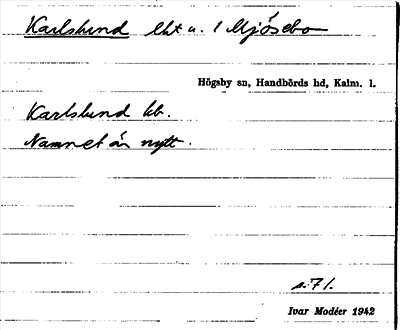 Karlslund lht u. 1 Mjösebo
Högsby sn, Handbörds hd, Kalm. l.
Karlslund kb.
Namnet är nytt.
s. 71.
Ivar Modéer 1942